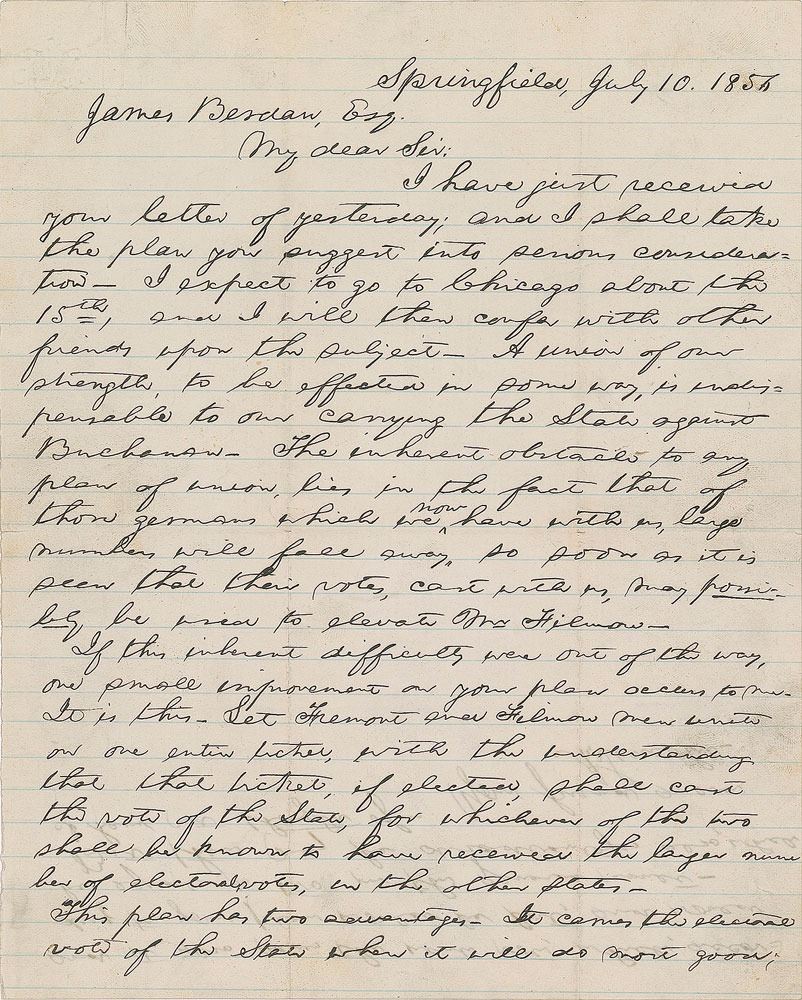 Springfield, July 10. 1856
James Berdan, Esq.
My dear Sir:
I have just received
your letter of yesterday; and I shall take
the plan you suggest into serious considera=
tion— I expect to go to Chicago about the
15th, and I will then confer with other
friends upon the subject— A union of our
strength, to be effected in some way, is indis=
pensable to our carrying the State against
Buchanan— The inherent obstacle to any
plan of union, lies in the fact that of
those germans which we now have with us, large
numbers will fall away, so soon as it is
seen that their votes, cast with us, may possi-
bly be used to elevate Mr Filmore—
If this inherent difficulty were out of the way,
one small improvement on your plan occurs to me—
It is this— Let Fremont and Filmore men unite
on one entire ticket, with the understanding
that that ticket, if elected, shall cast
the vote of the State, for whichever of the two
shall be known to have received the larger num
ber of electoral votes, in the other states—
This plan has two advantages— It carries the electoral
vote of the State where it will do most good;